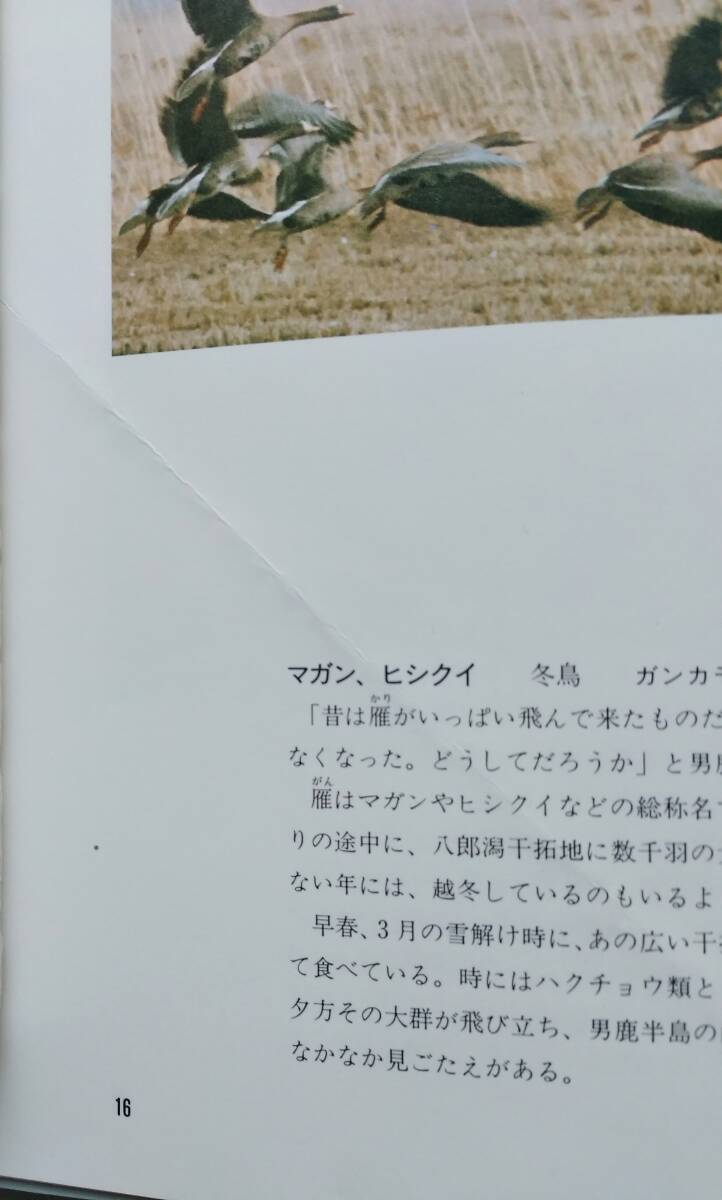 マガン、ヒシクイ 冬鳥 ガンカモ
かり
「昔は雁がいっぱい飛んで来たものだ
なくなった。どうしてだろうか」と男鹿
がん
雁はマガンやヒシクイなどの総称名
りの途中に、八郎潟干拓地に数千羽の
ない年には、越冬しているのもいるよ
早春、3月の雪解け時に、あの広い干拓
て食べている。時にはハクチョウ類と
夕方その大群が飛び立ち、男鹿半島の
なかなか見ごたえがある。
16